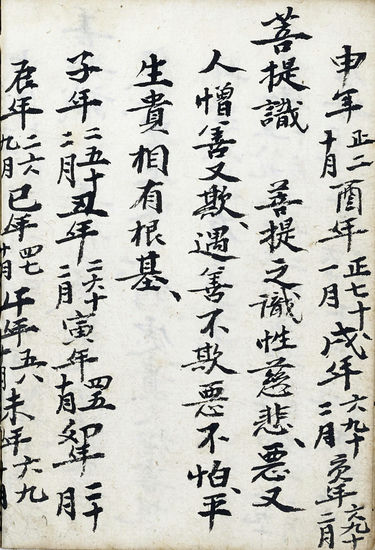 申年正二十月酉年正七十一月戌年六九十二月亥年六九十二月
菩提識 菩提之識性慈悲、惡又
人憎善又欺、遇善不欺惡不怕、平
生貴相有根基、
子年二五十二月丑年二六十二月寅年四五十月卯年二十月
辰年二六九月巳年四七十月午年五八十月未年六九十月